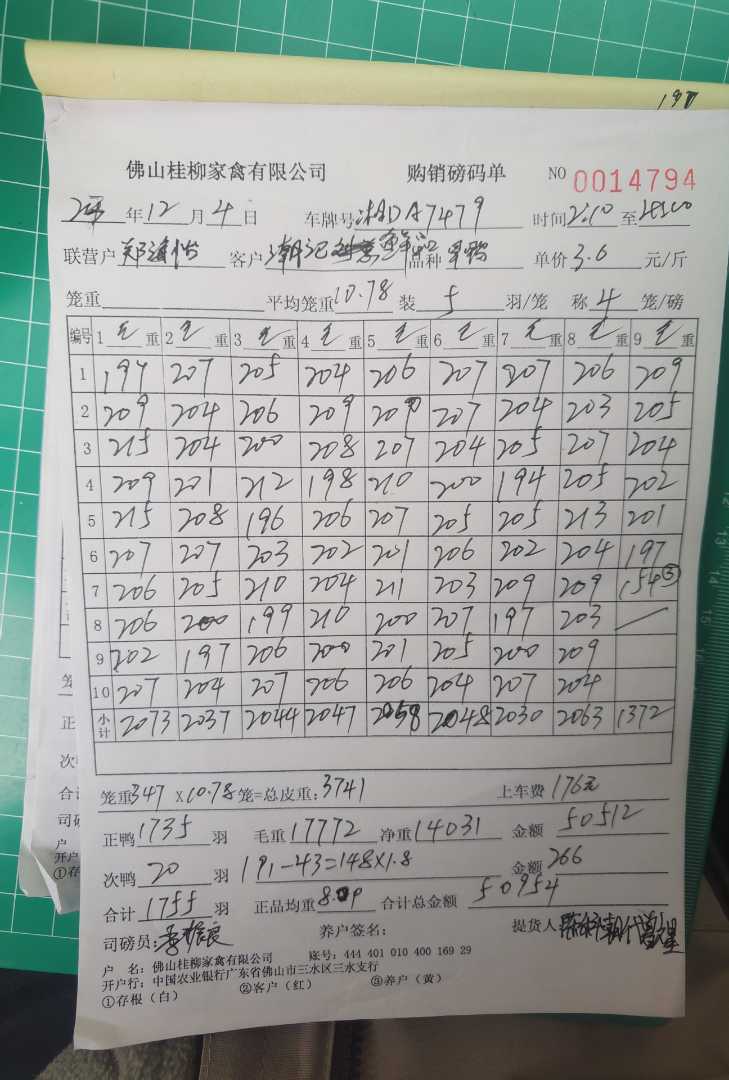 190
佛山桂柳家禽有限公司 购销磅码单 NO 0014794
年12月4日 车牌号 湘DA7479 时间 2:10 至
联营户 客户 潮记 品种 单价 3.6 元/斤
笼重 平均笼重 10.78 装 5 羽/笼 称 4 笼/磅
编号 1 毛 重 2 毛 重 3 毛 重 4 毛 重 5 毛 重 6 毛 重 7 毛 重 8 毛 重 9 毛 重
1 197 207 205 204 206 207 207 206 209
2 209 204 206 209 200 207 204 203 205
3 215 204 200 208 207 204 205 207 204
4 209 201 212 198 210 200 194 205 202
5 215 208 196 206 207 205 205 213 201
6 207 207 203 202 201 206 202 204 197
7 206 205 210 204 211 203 209 209 154③
8 206 200 199 210 200 207 197 203
9 202 197 206 200 201 205 200 209
10 207 204 207 206 206 204 207 204
小计 2073 2037 2044 2047 2058 2048 2030 2063 1372
笼重347 X10.78 笼=总皮重:3741 上车费 176元
正鸭 1735 羽 毛重 17772 净重 14031 金额 50512
次鸭 20 羽 191-43=148×1.8 金额 266
合计 1755 羽 正品均重 8.09 合计总金额 50954
司磅员: 养户签名: 提货人
户 名: 佛山桂柳家禽有限公司 账号: 444 401 010 400 169 29
开户行: 中国农业银行广东省佛山市三水区三水支行
①存根(白) ②客户(红) ③养户(黄)
笼
正
次
合
司磅
户
开户
①存